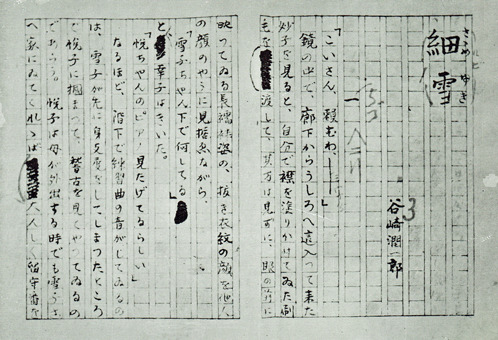 細雪
ささめゆき
谷崎潤一郎
一
「こいさん、頼むわ。―」
鏡の中で、廊下からうしろへ這入つて来た
妙子を見ると、自分で襟を塗りかけてゐた刷
毛を渡して、其方は見ずに、眼の前に
映つてゐる長襦袢姿の、抜き衣紋の顔を他人
の顔のやうに見据ゑながら、
「雪子ちやん下で何してる」
と、幸子はきいた。
「悦ちやんのピアノ見たげてるらしい」
なるほど、階下で練習曲の音がしてゐるの
は、雪子が先に身支度をしてしまつたところ
で悦子に掴まつて、稽古を見てやつてゐるの
であらう。悦子は母が外出する時でも雪子さ
へ家にゐてくれゝば大人しく留守番を